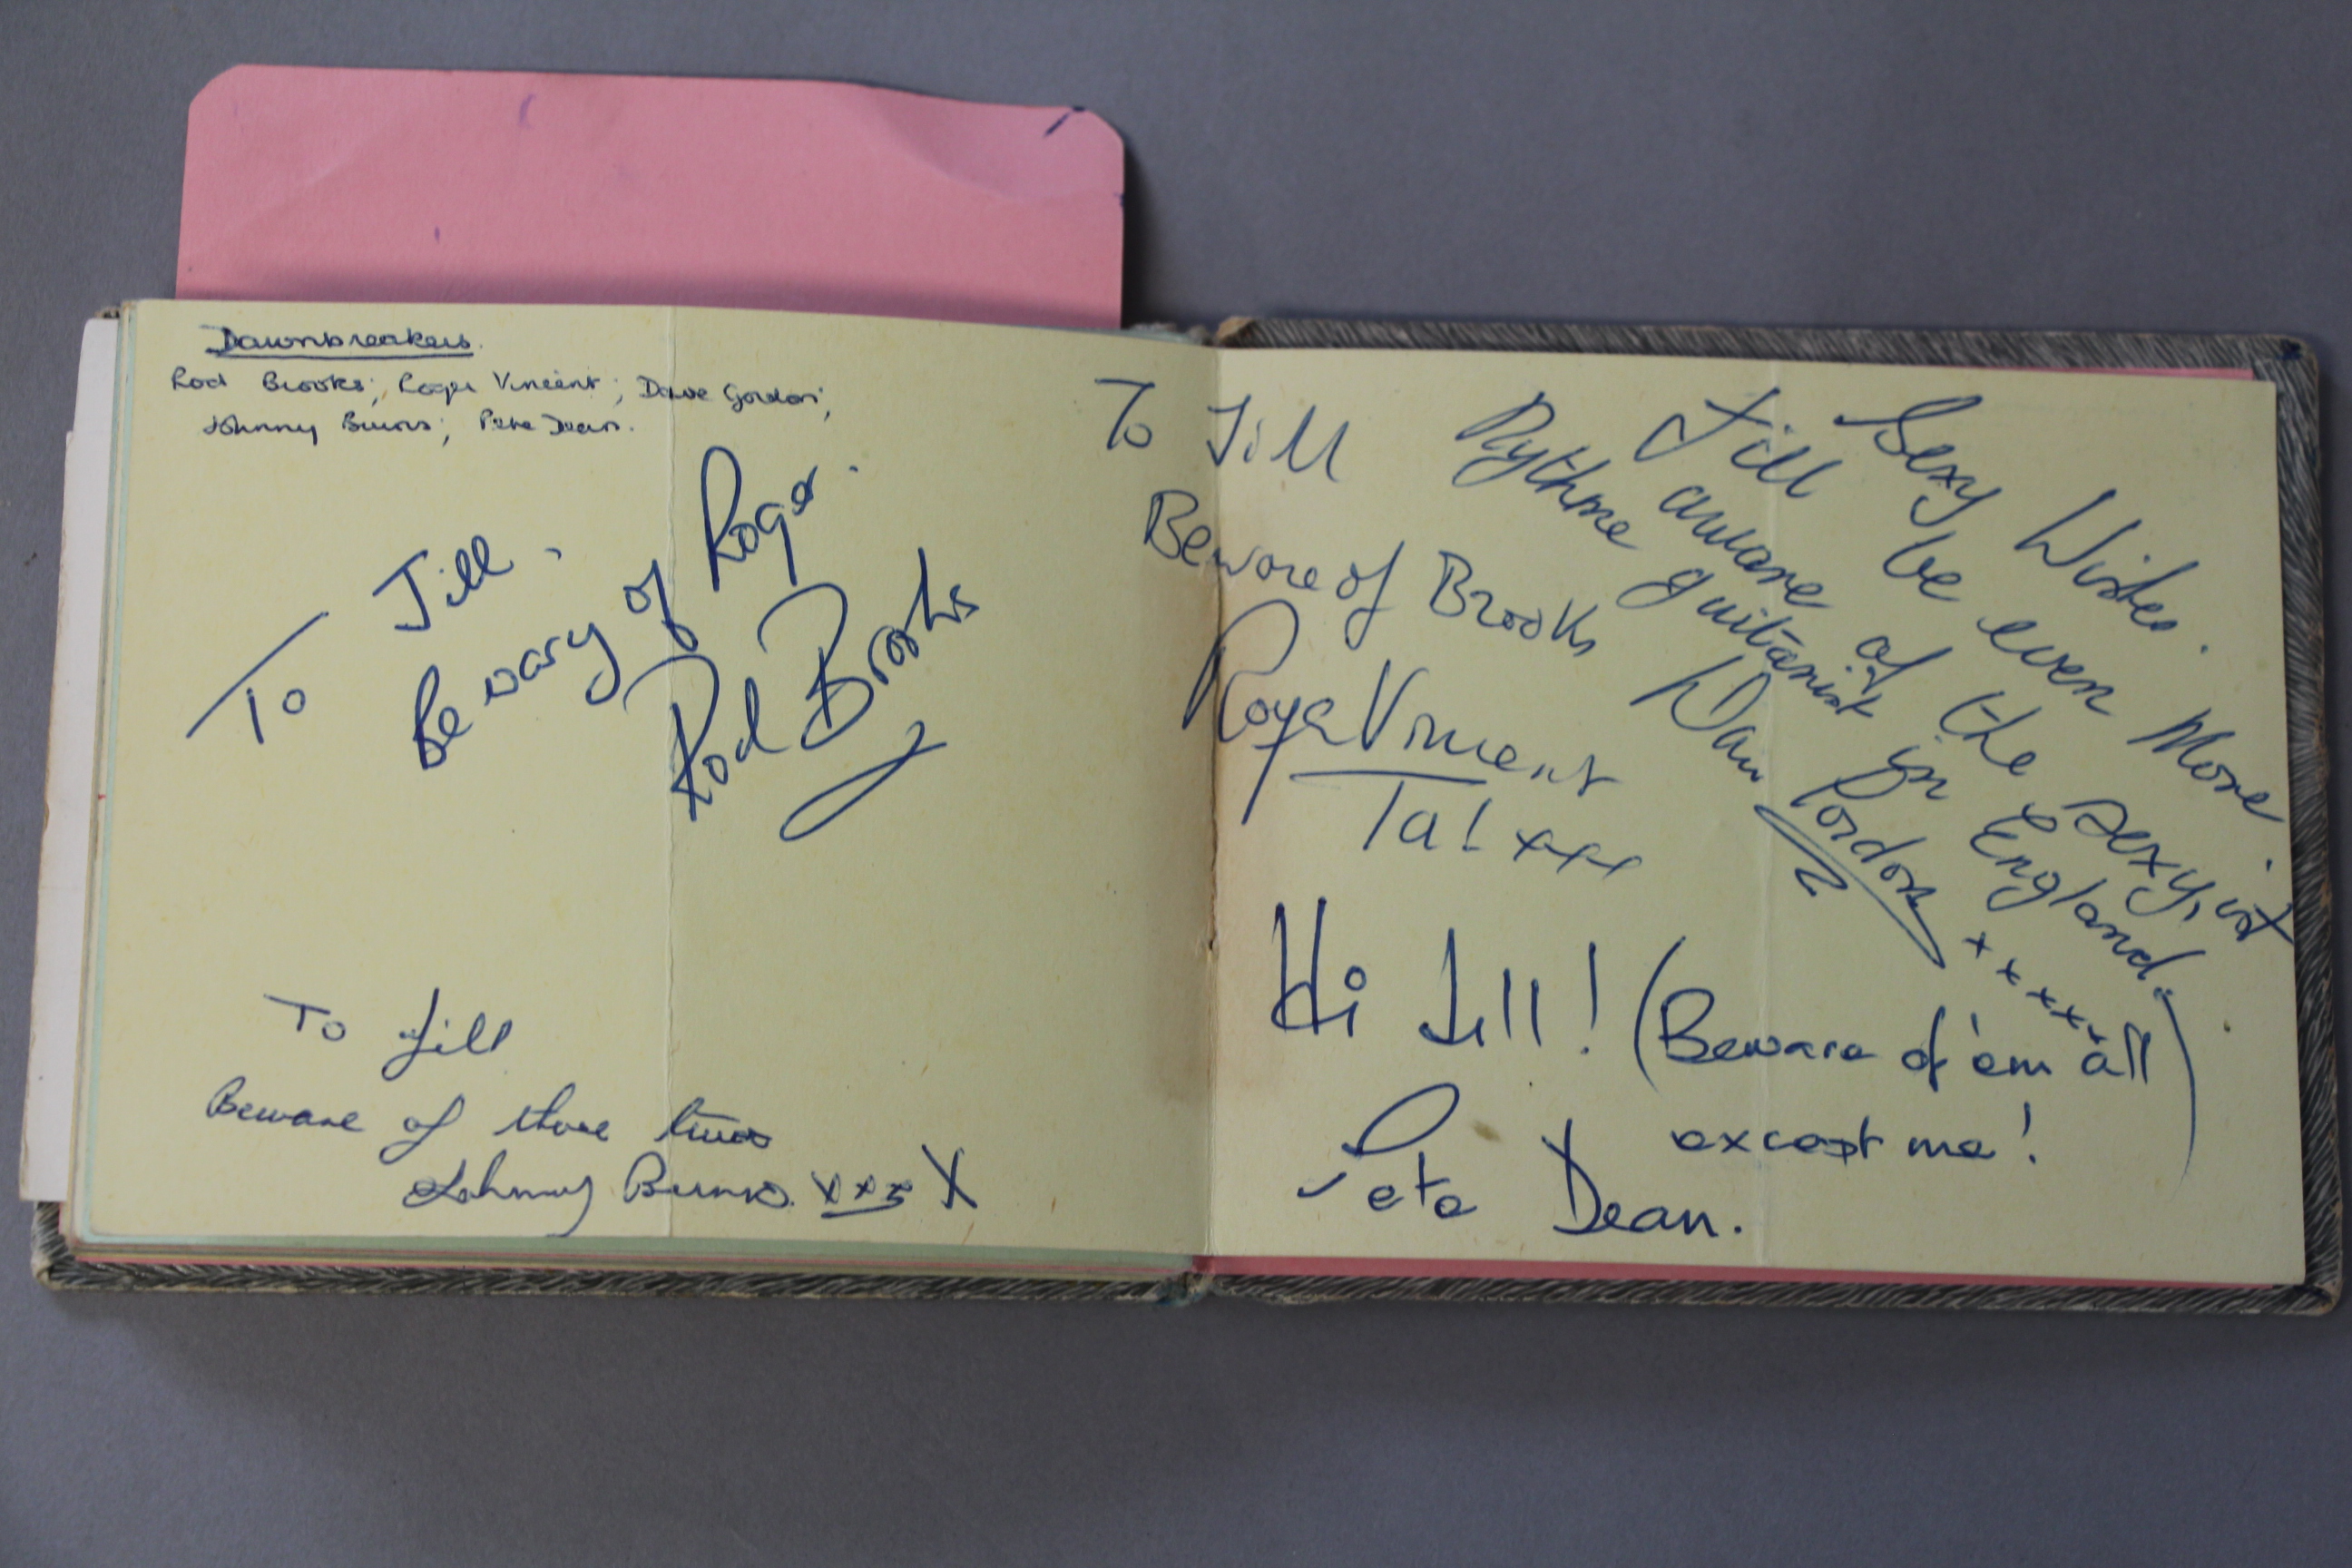 Dawnbreakers.
Rod Brooks; Roger Vincent; Dave Gordon;
Johnny Burns; Pete Dean.
To Jill.
be wary of Roger.
Rod Brooks
To Jill
Beware of those two
Johnny Burns. xxx X
To Jill
Beware of Brooks
Roger Vincent
Ta! xxx
Sexy Wishes.
Jill be even More
aware of the sexyist
Rythme guitarist in England.
Dave Gordon
xxxxxx
Hi Jill! (Beware of 'em all
except me!)
Pete Dean.